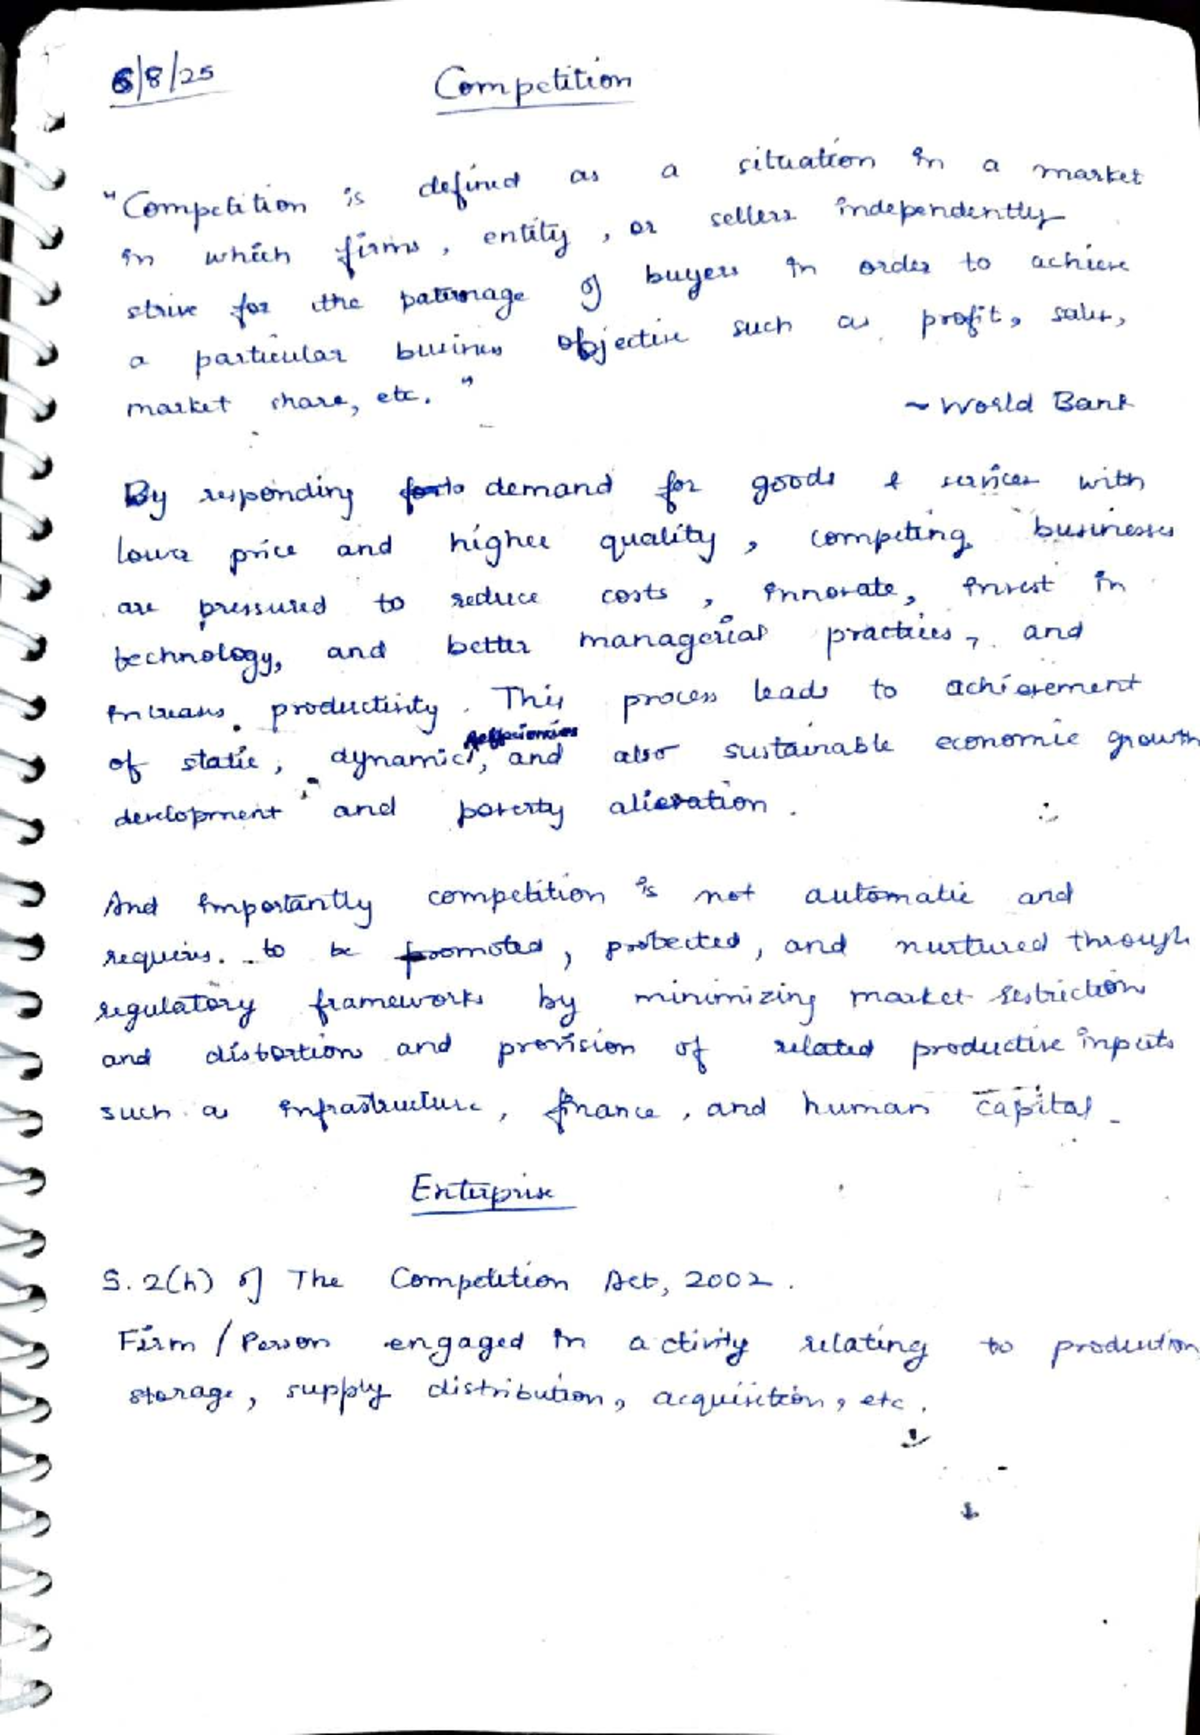 6/8/25
Competition
"Competition is defined as a situation in a market
in which firms, entity, or sellers independently
strive for the patronage of buyers in order to achieve
a particular business objective such as profit, sales,
market share, etc."
~ World Bank
By responding to demand for goods & services with
lower price and higher quality, competing businesses
are pressured to reduce costs, innovate, invest in
technology, and better managerial practices, and
increase productivity. This process leads to achievement
of static, dynamic efficiencies, and also sustainable economic growth
development and poverty alievation.
And importantly competition is not automatic and
requires to be promoted, protected, and nurtured through
regulatory frameworks by minimizing market restriction
and distortion and provision of related productive inputs
such as infrastructure, finance, and human capital.
Enterprise
S. 2(h) of The Competition Act, 2002.
Firm / Person engaged in activity relating to production
storage, supply distribution, acquisition, etc.